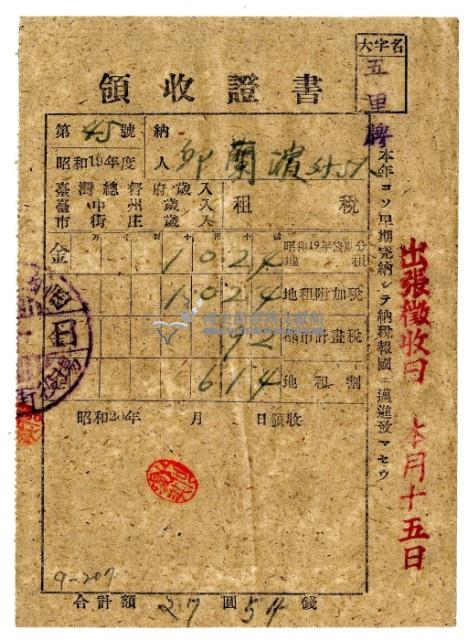 大字名
五里牌
領收證書
第45號
納人
昭和19年度
臺灣總督府歲入
臺中州歲入
市街庄歲入
租稅
金
昭和19年後期分
地租
1024
地租附加稅
1024
都市計畫稅
92
地租割
614
昭和20年 月 日領收
9-207
合計額 27 圓 54 錢
本年コソ早期完納シテ納稅報國ニ邁進致マセウ
出張徵收日 本月十五日